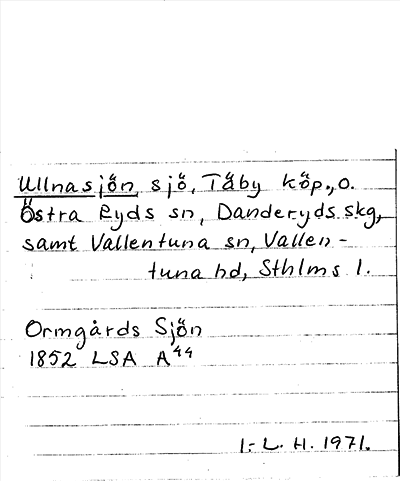 Ullnasjön, sjö, Täby köp., o.
Östra Ryds sn, Danderyds skg,
samt Vallentuna sn, Vallen-
tuna hd, Sthlms l.
Ormgårds Sjön
1852 LSA A44
I-L. H. 1971.